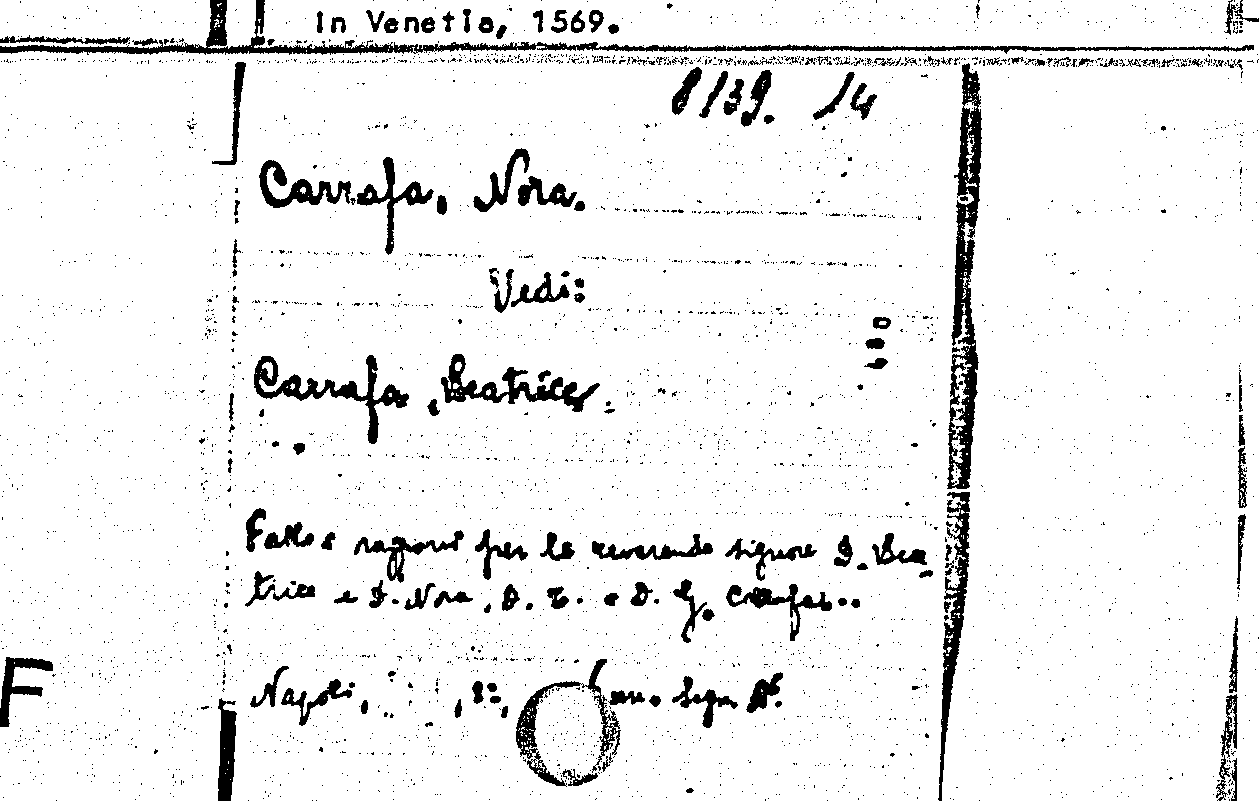 in Venetia, 1569.
8139. 14
Carrafa, Nora.
Vedi:
Carrafa, Beatrice.
Fatto e ragioni per le reverende signore D. Bea_
trice e D. Nora, D. T. e D. G. Carafa..
Napoli, , 8º, Segn. A⁶.
F